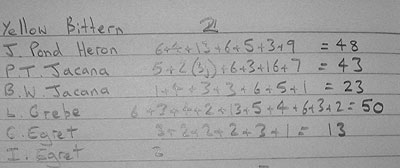 Yellow Bittern 21
J. Pond Heron 6+4+13+6+5+3+9 = 48
P.T. Jacana 5+2(3j)+6+3+16+7 = 43
B.W Jacana 1+4+3+3+6+5+1 = 23
L. Grebe 6+3+4+2+13+5+4+6+3+2=50
C. Egret 3+2+2+2+3+1 = 13
I. Egret